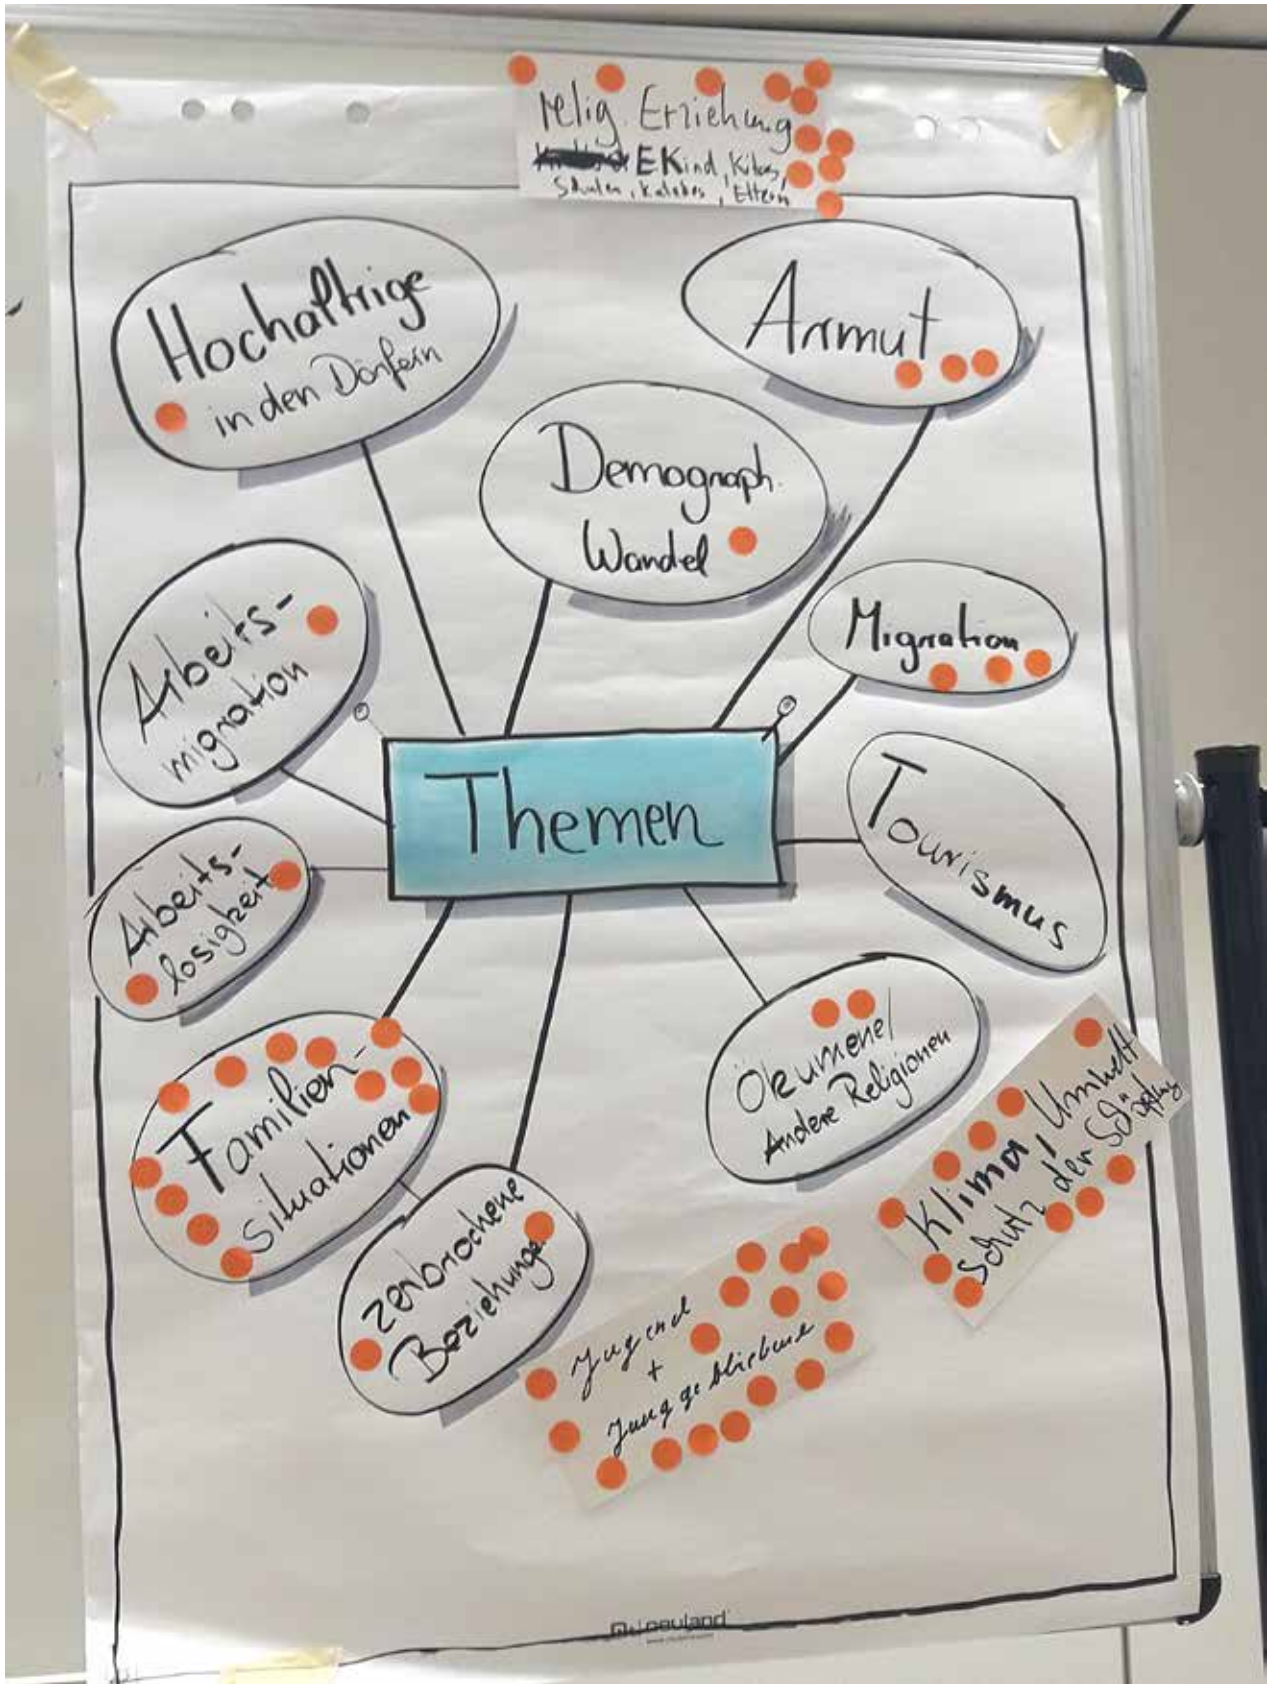 relig. Erziehung
EKind, Kitas,
Schulen, Katebes, Eltern
Hochaltrige
in den Dörfern
Armut
Demograph.
Wandel
Arbeits-
migration
Migration
Themen
Tourismus
Arbeits-
losigkeit
Ökumene/
Andere Religionen
Familien-
situationen
Klima, Umwelt
Schutz der Schöpfung
zerbrochene
Beziehunge
Jugend
+
Junggebliebene
neuland